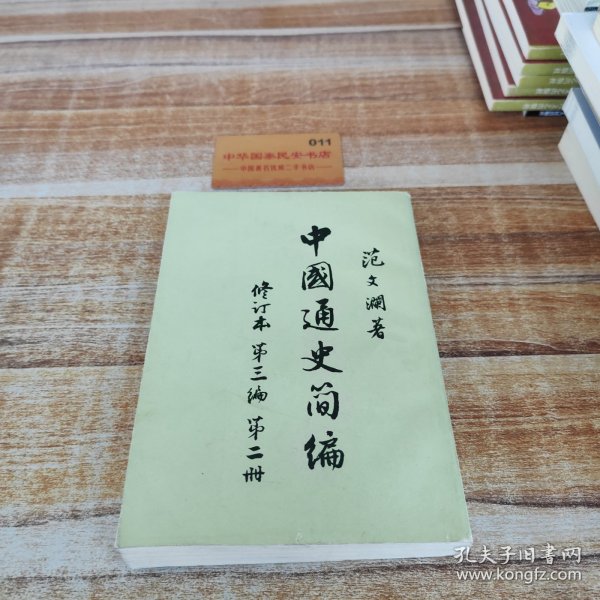 011
中华国泰民安书店
中国著名优质二手书店
范文澜著
中國通史简编
修订本 第三编 第二册
孔夫子旧书网
www.kongfz.com